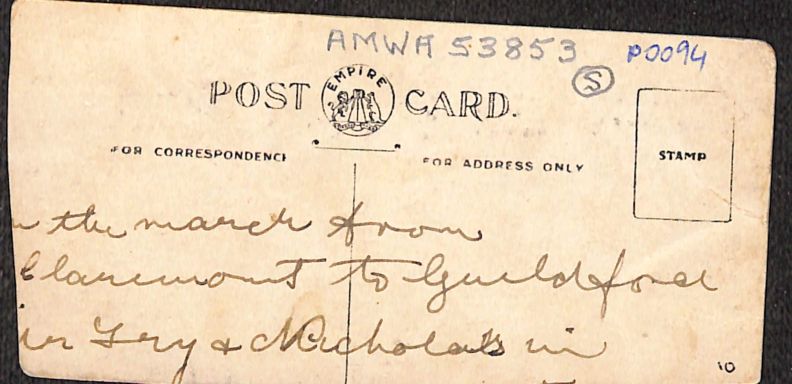 AMWA 53853 P0094
S
POST EMPIRE CARD.
FOR CORRESPONDENCE FOR ADDRESS ONLY
STAMP
the march from
Claremont to Guildford
& Nicholas in
10